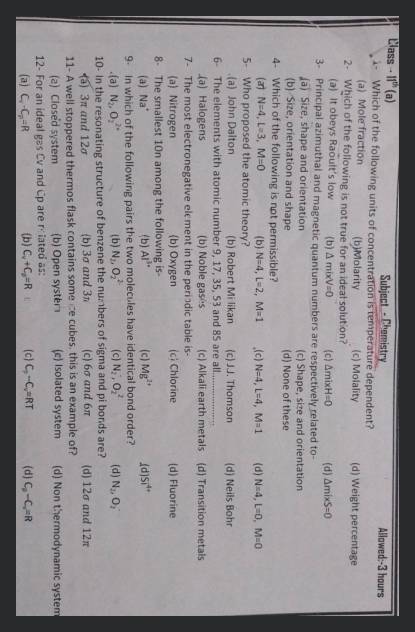 Class - 11th (a) Subject - Chemistry Allowed:-3 hours
1- Which of the following units of concentration is temperature dependent?
(a) Mole fraction (b) Molarity (c) Molality (d) Weight percentage
2- Which of the following is not true for an ideal solution?
(a) It obeys Raoult's low (b) Δ mixV=0 (c) ΔmixH=0 (d) ΔmixS=0
3- Principal azimuthal and magnetic quantum numbers are respectively related to-
(a) Size, shape and orientation (c) Shape, size and orientation
(b) Size, orientation and shape (d) None of these
4- Which of the following is not permissible?
(a) N=4, L=3, M=0 (b) N=4, L=2, M=1 (c) N=4, L=4, M=1 (d) N=4, L=0, M=0
5- Who proposed the atomic theory?
(a) John Dalton (b) Robert Millikan (c) J.J. Thomson (d) Neils Bohr
6- The elements with atomic number 9, 17, 35, 53 and 85 are all................
(a) Halogens (b) Noble gases (c) Alkali earth metals (d) Transition metals
7- The most electronegative element in the periodic table is-
(a) Nitrogen (b) Oxygen (c) Chlorine (d) Fluorine
8- The smallest 10n among the following is-
(a) Na+ (b) Al3+ (c) Mg2+ (d) Si4+
9- In which of the following pairs the two molecules have identical bond order?
(a) N2, O2 2+ (b) N2, O2 (c) N2, O2 (d) N2, O2
10- In the resonating structure of benzene the numbers of sigma and pi bonds are?
(a) 3π and 12σ (b) 3σ and 3π (c) 6σ and 6π (d) 12σ and 12π
11- A well stoppered thermos flask contains some ice cubes. this is an example of?
(a) Closed system (b) Open system (c) Isolated system (d) Non thermodynamic system
12- For an ideal gas Cv and Cp are related as:
(a) Cv-Cp=R (b) Cv+Cp=R (c) Cp-Cv=RT (d) Cp-Cv=R